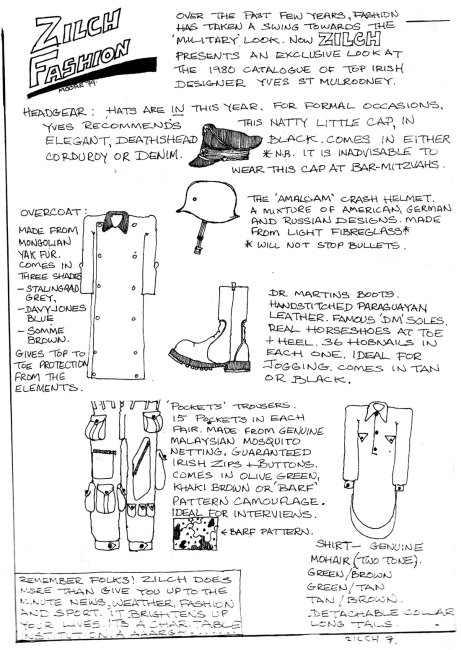 ZILCH
FASHION
MOORE '79
OVER THE PAST FEW YEARS, FASHION
HAS TAKEN A SWING TOWARDS THE
'MILITARY' LOOK. NOW ZILCH
PRESENTS AN EXCLUSIVE LOOK AT
THE 1980 CATALOGUE OF TOP IRISH
DESIGNER YVES ST MULROONEY.
HEADGEAR: HATS ARE IN THIS YEAR. FOR FORMAL OCCASIONS,
YVES RECOMMENDS THIS NATTY LITTLE CAP, IN
ELEGANT, DEATHSHEAD BLACK. COMES IN EITHER
CORDUROY OR DENIM. *N.B. IT IS INADVISABLE TO
WEAR THIS CAP AT BAR-MITZVAHS.
THE 'AMALGAM' CRASH HELMET.
A MIXTURE OF AMERICAN, GERMAN
AND RUSSIAN DESIGNS. MADE
FROM LIGHT FIBREGLASS*
* WILL NOT STOP BULLETS.
OVERCOAT:
MADE FROM
MONGOLIAN
YAK FUR.
COMES IN
THREE SHADES
- STALINGRAD
GREY,
- DAVY JONES
BLUE
- SOMME
BROWN.
GIVES TOP TO
TOE PROTECTION
FROM THE
ELEMENTS.
DR. MARTINS BOOTS.
HANDSTITCHED PARAGUAYAN
LEATHER. FAMOUS 'DM' SOLES.
REAL HORSESHOES AT TOE
+ HEEL. 36 HOBNAILS IN
EACH ONE. IDEAL FOR
JOGGING. COMES IN TAN
OR BLACK.
'POCKETS' TROUSERS.
15 POCKETS IN EACH
PAIR. MADE FROM GENUINE
MALAYSIAN MOSQUITO
NETTING. GUARANTEED
IRISH ZIPS + BUTTONS.
COMES IN OLIVE GREEN,
KHAKI BROWN OR 'BARF'
PATTERN CAMOUFLAGE.
IDEAL FOR INTERVIEWS.
← BARF PATTERN.
SHIRT - GENUINE
MOHAIR (TWO TONE).
GREEN/BROWN
GREEN/TAN
TAN/BROWN.
DETACHABLE COLLAR
LONG TAILS.
REMEMBER FOLKS! ZILCH DOES
MORE THAN GIVE YOU UP TO THE
MINUTE NEWS, WEATHER, FASHION
AND SPORT. IT BRIGHTENS UP
YOUR LIVES. IT'S A CHARITABLE
ZILCH 7.